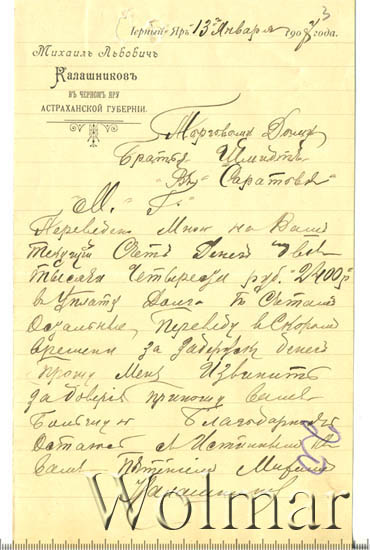 Черный Яръ, 13 Января 1903 года.
Михаилъ Львовичъ
Калашниковъ
въ Черномъ Яру
Астраханской губерніи.
Торговому Дому
Братья Шмидтъ
Въ Саратовѣ
М. Г.
Переведено Мною на Вашъ
текущій Счетъ Денегъ Двѣ
тысячи четыреста руб. 2400 р
в уплату Долга по Счетамъ
Остальные Переведу в Скоромъ
времени за задержку денегъ
прошу Меня Извинить
за доверіе приношу вамъ
Большую Благодарность
Остаюсь Истиннымъ къ
вамъ Михаилъ
Калашниковъ
Wolmar